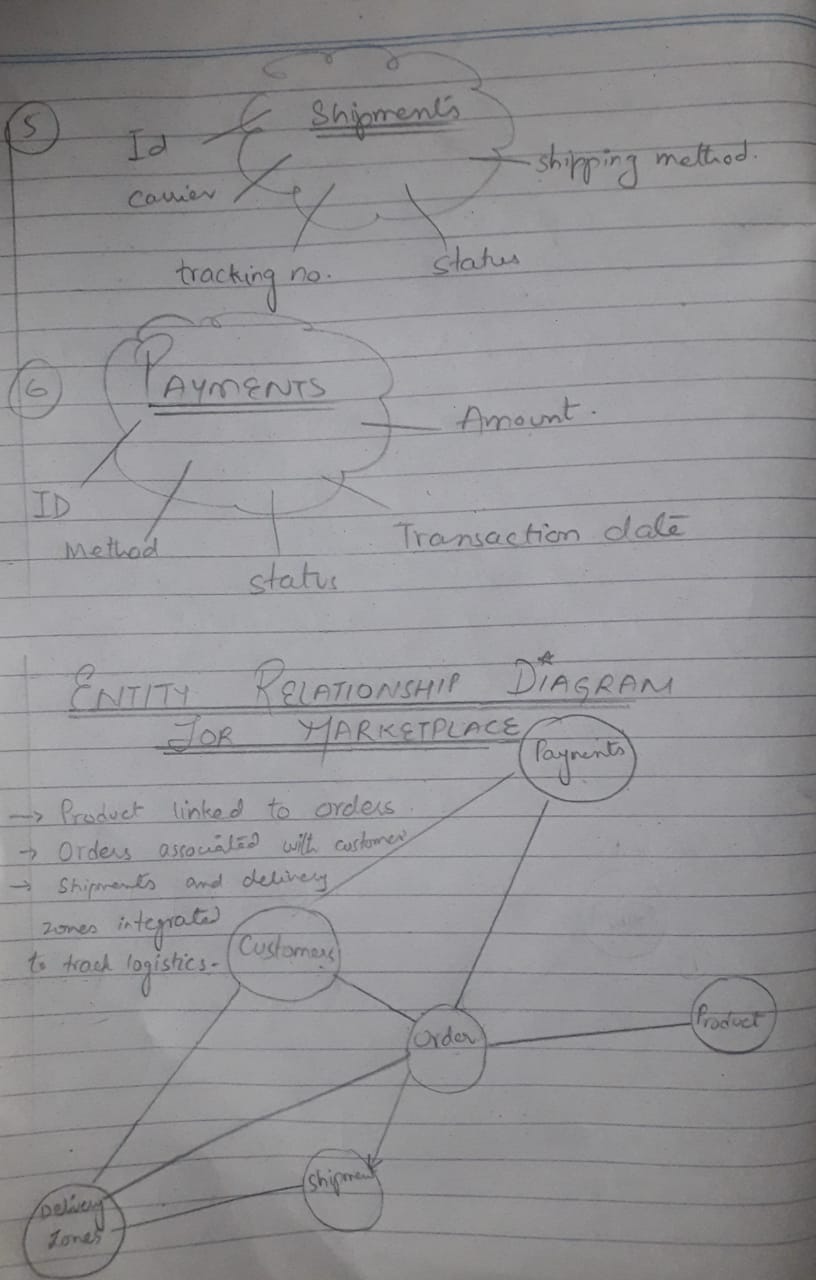 5
Shipments
Id
shipping method.
carrier
tracking no.
status
6
PAYMENTS
Amount.
ID
Method
Transaction date
status
ENTITY RELATIONSHIP DIAGRAM
FOR MARKETPLACE
Payments
→ Product linked to orders.
→ Orders associated with customer
→ Shipments and delivery
zones integrated
to track logistics.
Customers
Order
Product
Shipment
Delivery
Zones